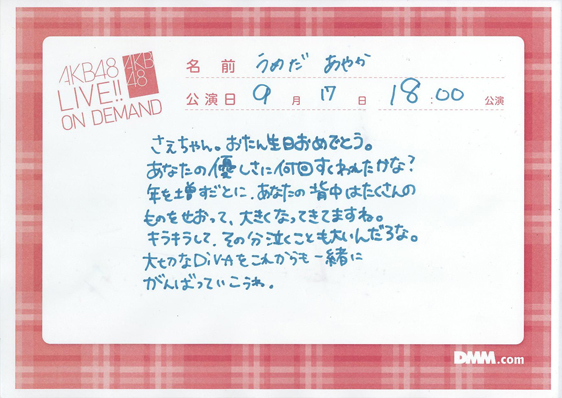 AKB48
LIVE!!
ON DEMAND
AKB
48
名前 うめだ あやか
公演日 9月17日 18:00 公演
さえちゃん。おたん生日おめでとう。
あなたの優しさに何回すくわれたかな?
年を増すごとに、あなたの背中はたくさんの
ものをせおって、大きくなってきてますね。
キラキラして、その分泣くことも大いんだろな。
大切なDiVAをこれからも一緒に
がんばっていこうね。
DMM.com